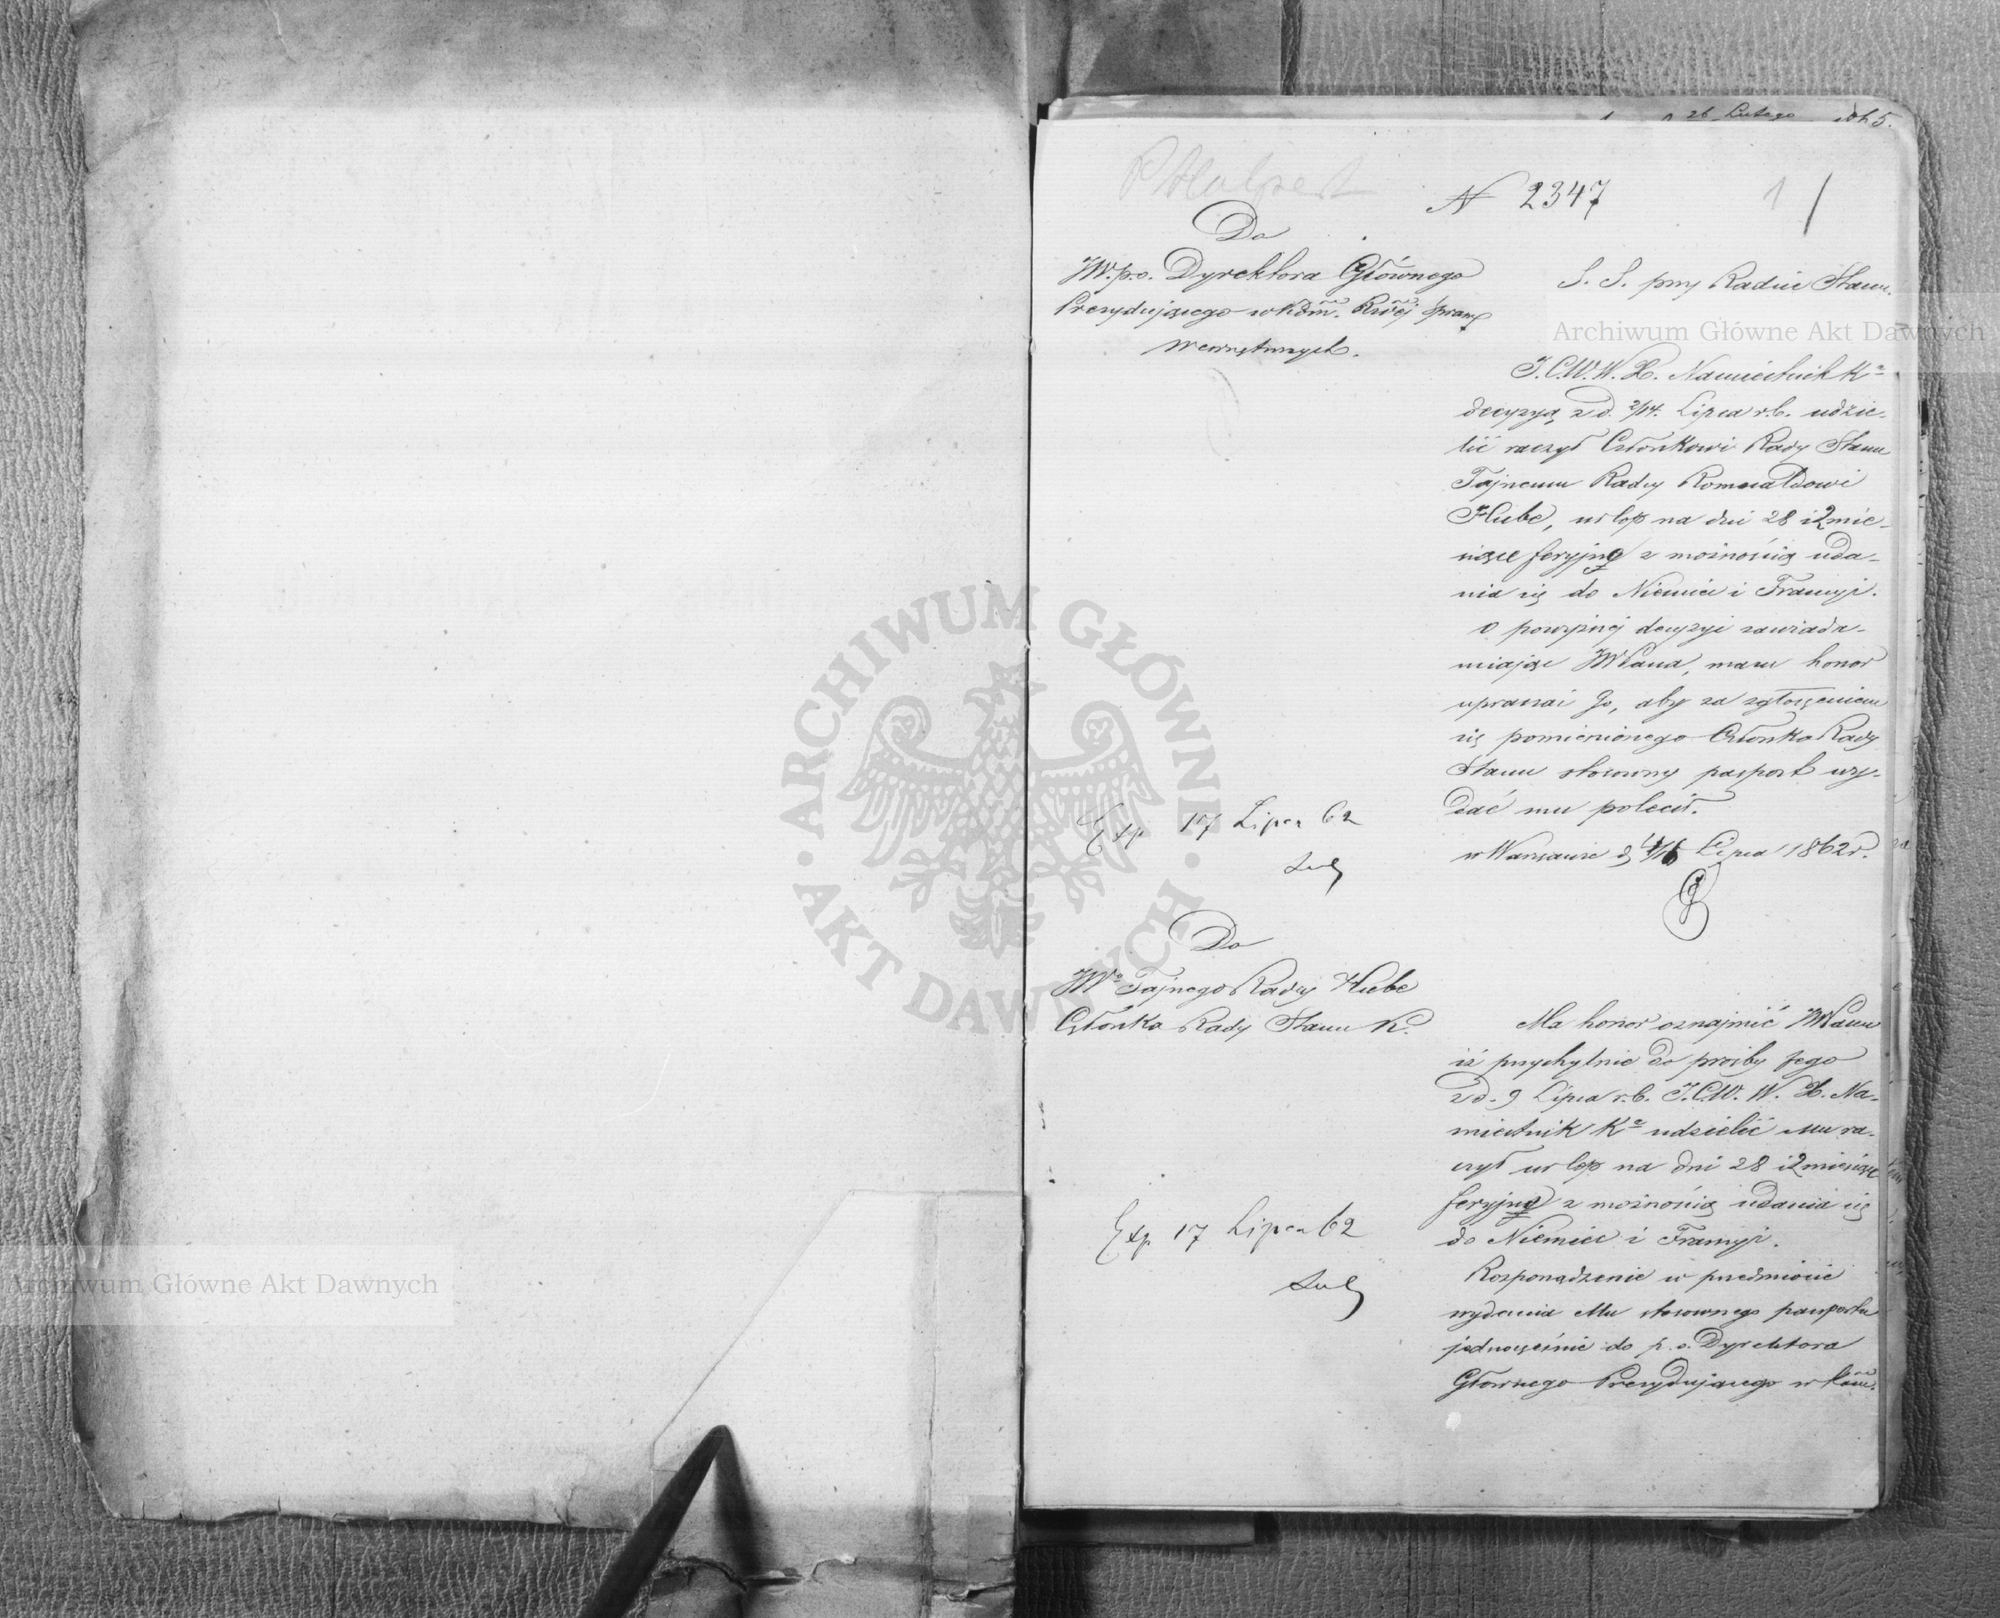 26 Lutego
P Halpert
N 2347
1
Do
JW. p.o. Dyrektora Głównego
Prezydującego w Kom. Rwej Spraw
Wewnętrznych.
S. S. przy Radzie Stanu.
J.C.W.W.X. Namiestnik Kª
decyzyą z d. 2/14. Lipca r.b. udzie-
lić raczył Członkowi Rady Stanu
Tajnemu Radcy Romualdowi
Hube, urlop na dni 28 i 2 mie-
siące feryjne z możnością uda-
nia się do Niemiec i Francyi.
O powyższej decyzyi zawiada-
miając JWPana, mam honor
upraszać Go, aby za zgłoszeniem
się pomienionego Członka Rady
Stanu stosowny paszport wy-
dać mu polecił.
w Warszawie d 4/16 Lipca 1862 r.
Exp 17 Lipca 62
Do
JWº Tajnego Radcy Hube
Członka Rady Stanu K.
Ma honor oznajmić JWPanu
iż przychylnie do prośby Jego
z d. 9 Lipca r.b. J.C.W. W. X. Na-
miestnik Kª udzielić Mu ra-
czył urlop na dni 28 i 2 miesiące
feryjne z możnością udania się
do Niemiec i Francyi.
Rozporządzenie w przedmiocie
wydania Mu stosownego paszportu
jednocześnie do p.o. Dyrektora
Głównego Prezydującego w Kom.
Exp 17 Lipca 62
Archiwum Główne Akt Dawnych
Archiwum Główne Akt Dawnych
ARCHIWUM GŁÓWNE AKT DAWNYCH